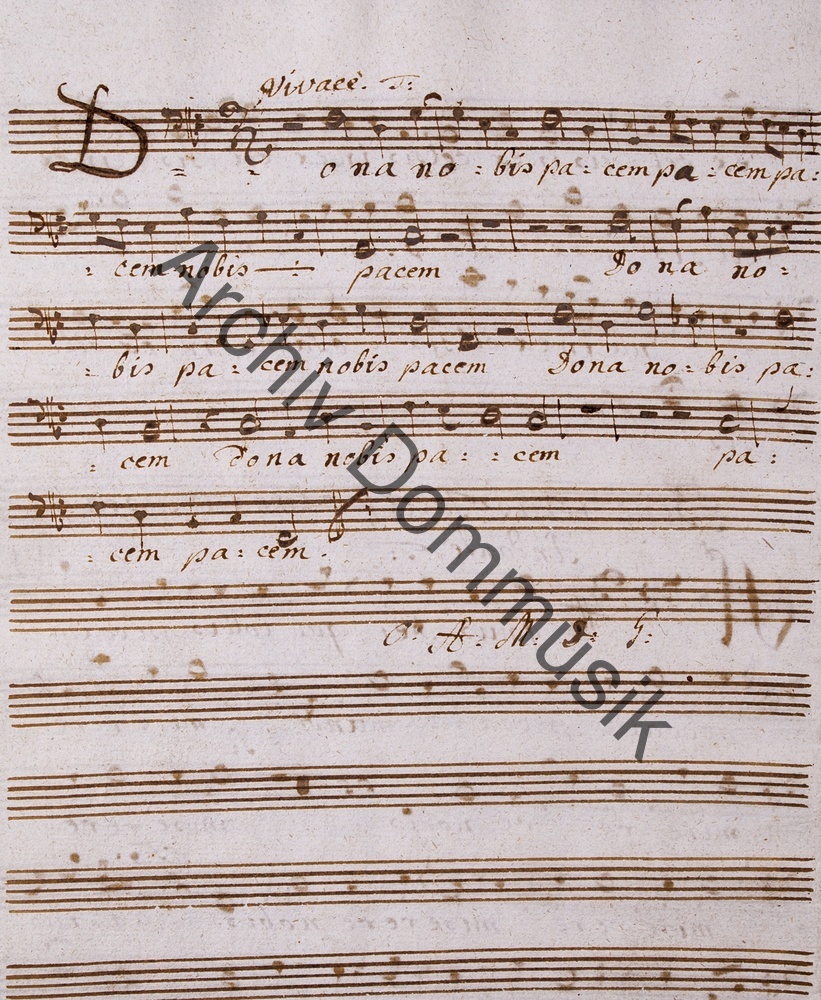 Vivace. T:
Dona no : bis pa : cem pa : cem pa :
: cem nobis pacem Dona no :
: bis pa : cem nobis pacem Dona no : bis pa :
: cem Dona nobis pa : : cem pa :
: cem pa : cem .
O. A. M. D. G:
Archiv Dommusik